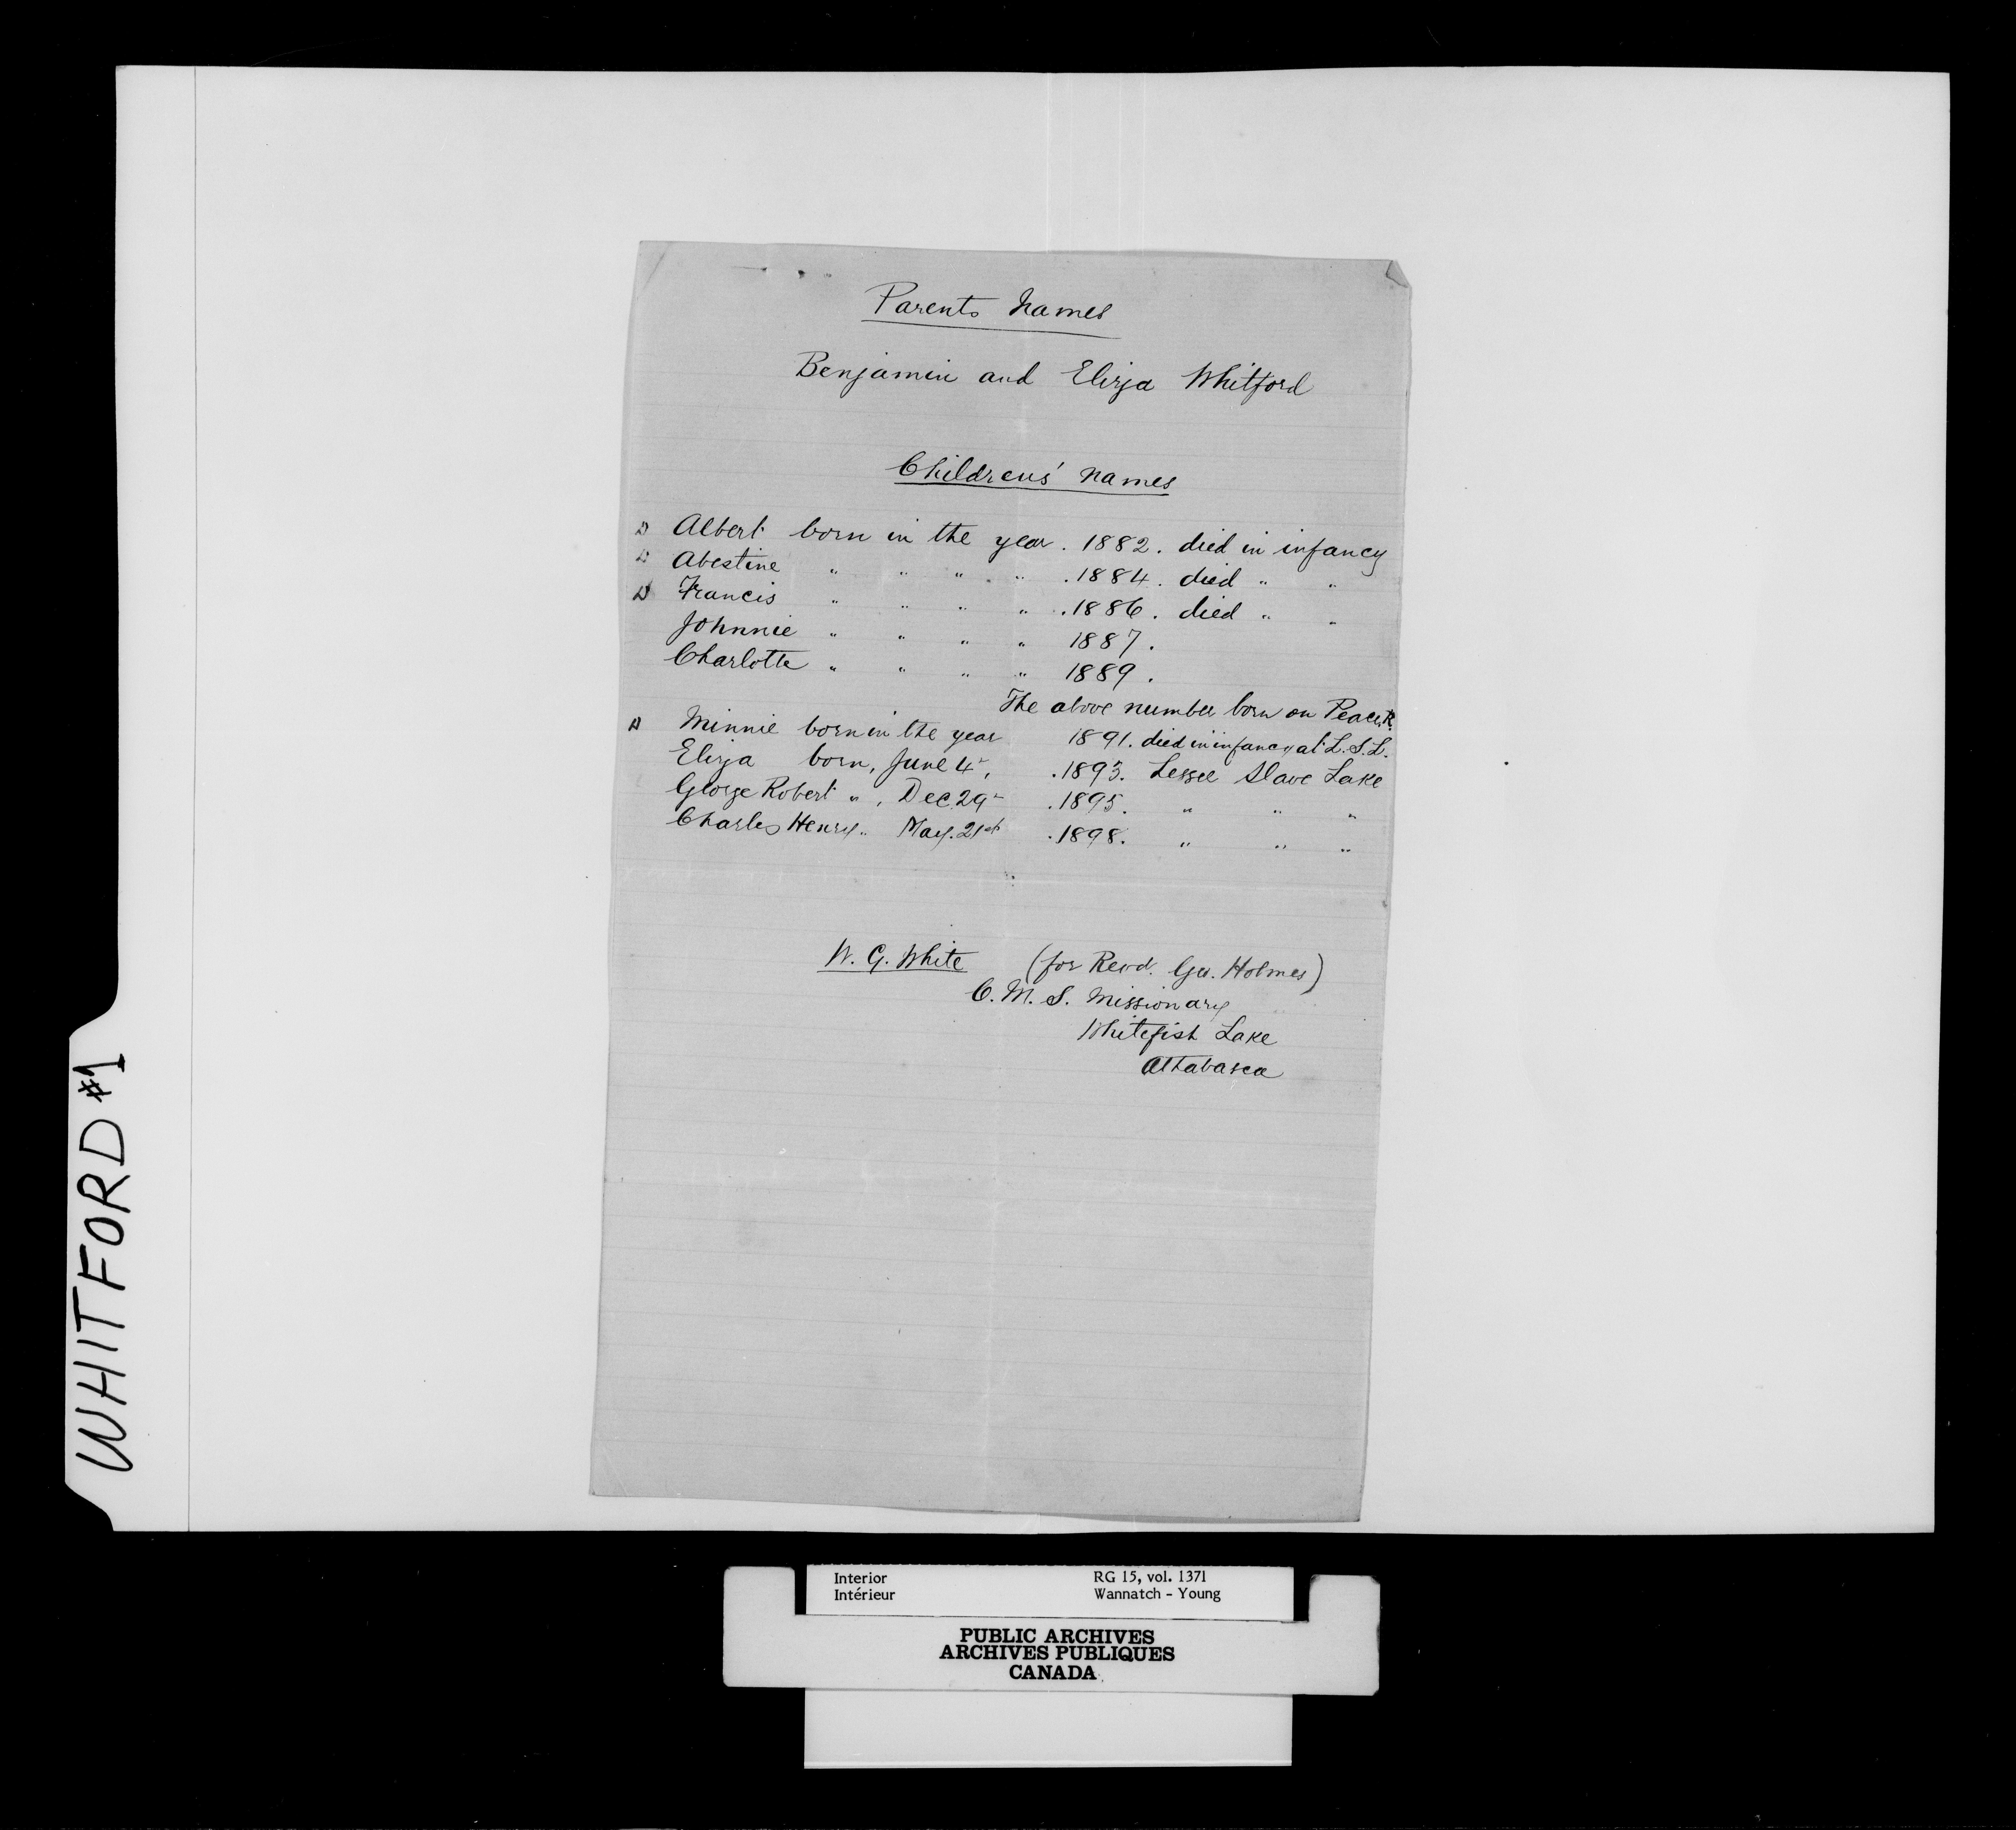 Parents Names
Benjamin and Eliza Whitford
Childrens' names
D Albert born in the year . 1882 . died in infancy
D Abestine " " " " . 1884 . died " "
D Francis " " " " . 1886 . died " "
Johnnie " " " " 1887 .
Charlotte " " " " 1889 .
The above number born on Peace R.
D Minnie born in the year 1891. died in infancy at L.S.L.
Eliza born, June 4", . 1893. Lesser Slave Lake
George Robert " , Dec. 29" . 1895. " " "
Charles Henry " May. 21st . 1898. " " "
W. G. White (for Revd. Geo. Holmes)
C. M. S. Missionary
Whitefish Lake
Athabasca
WHITFORD #1
Interior RG 15, vol. 1371
Intérieur Wannatch - Young
PUBLIC ARCHIVES
ARCHIVES PUBLIQUES
CANADA